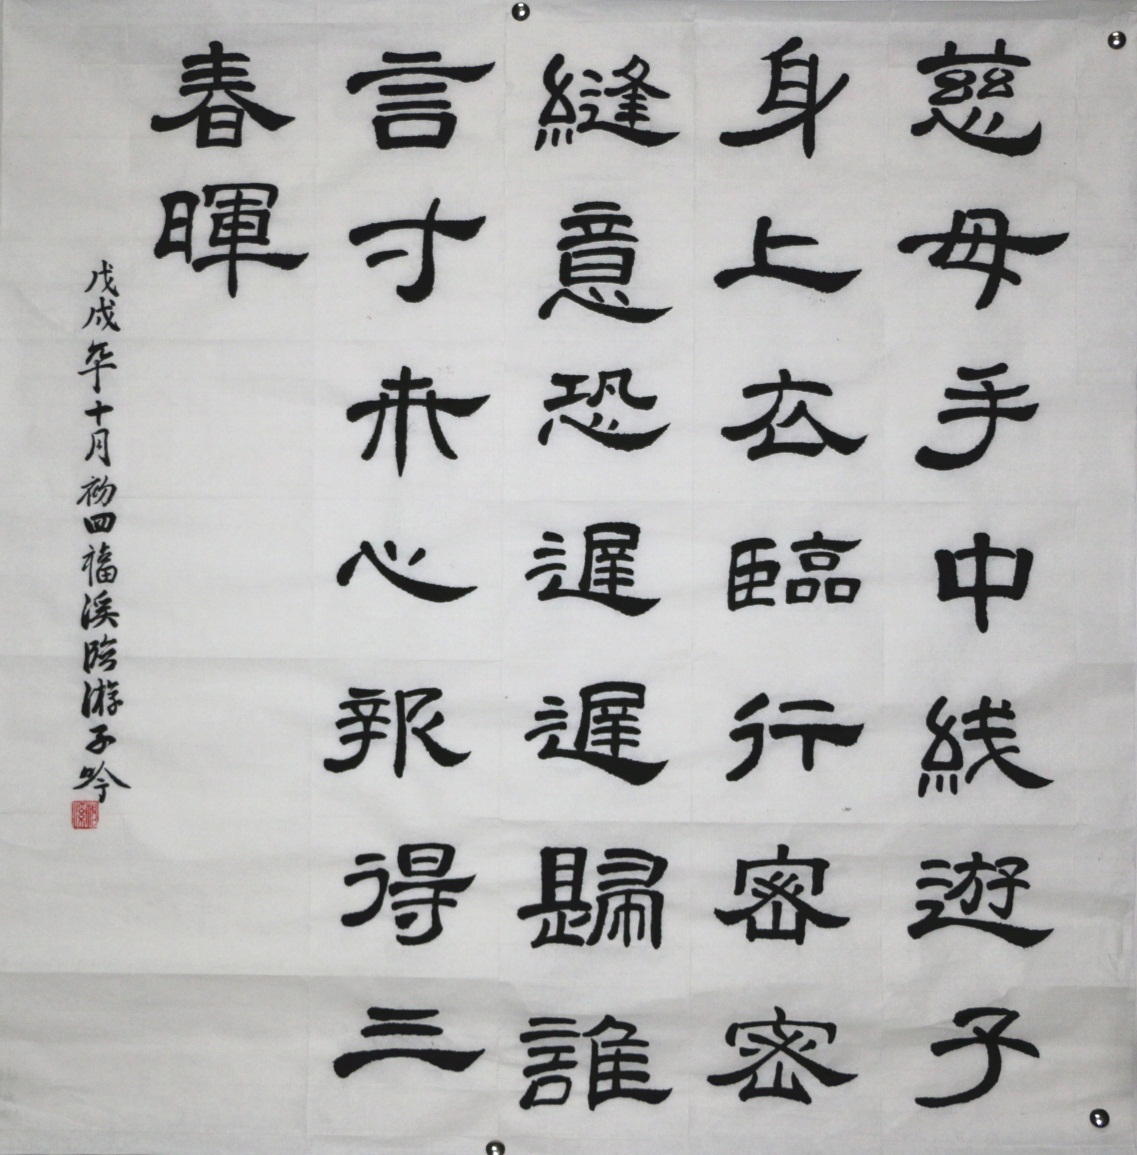 慈母手中线遊子
身上衣臨行密密
縫意恐遲遲歸誰
言寸草心報得三
春暉
戊戌年十月初四福溪临游子吟